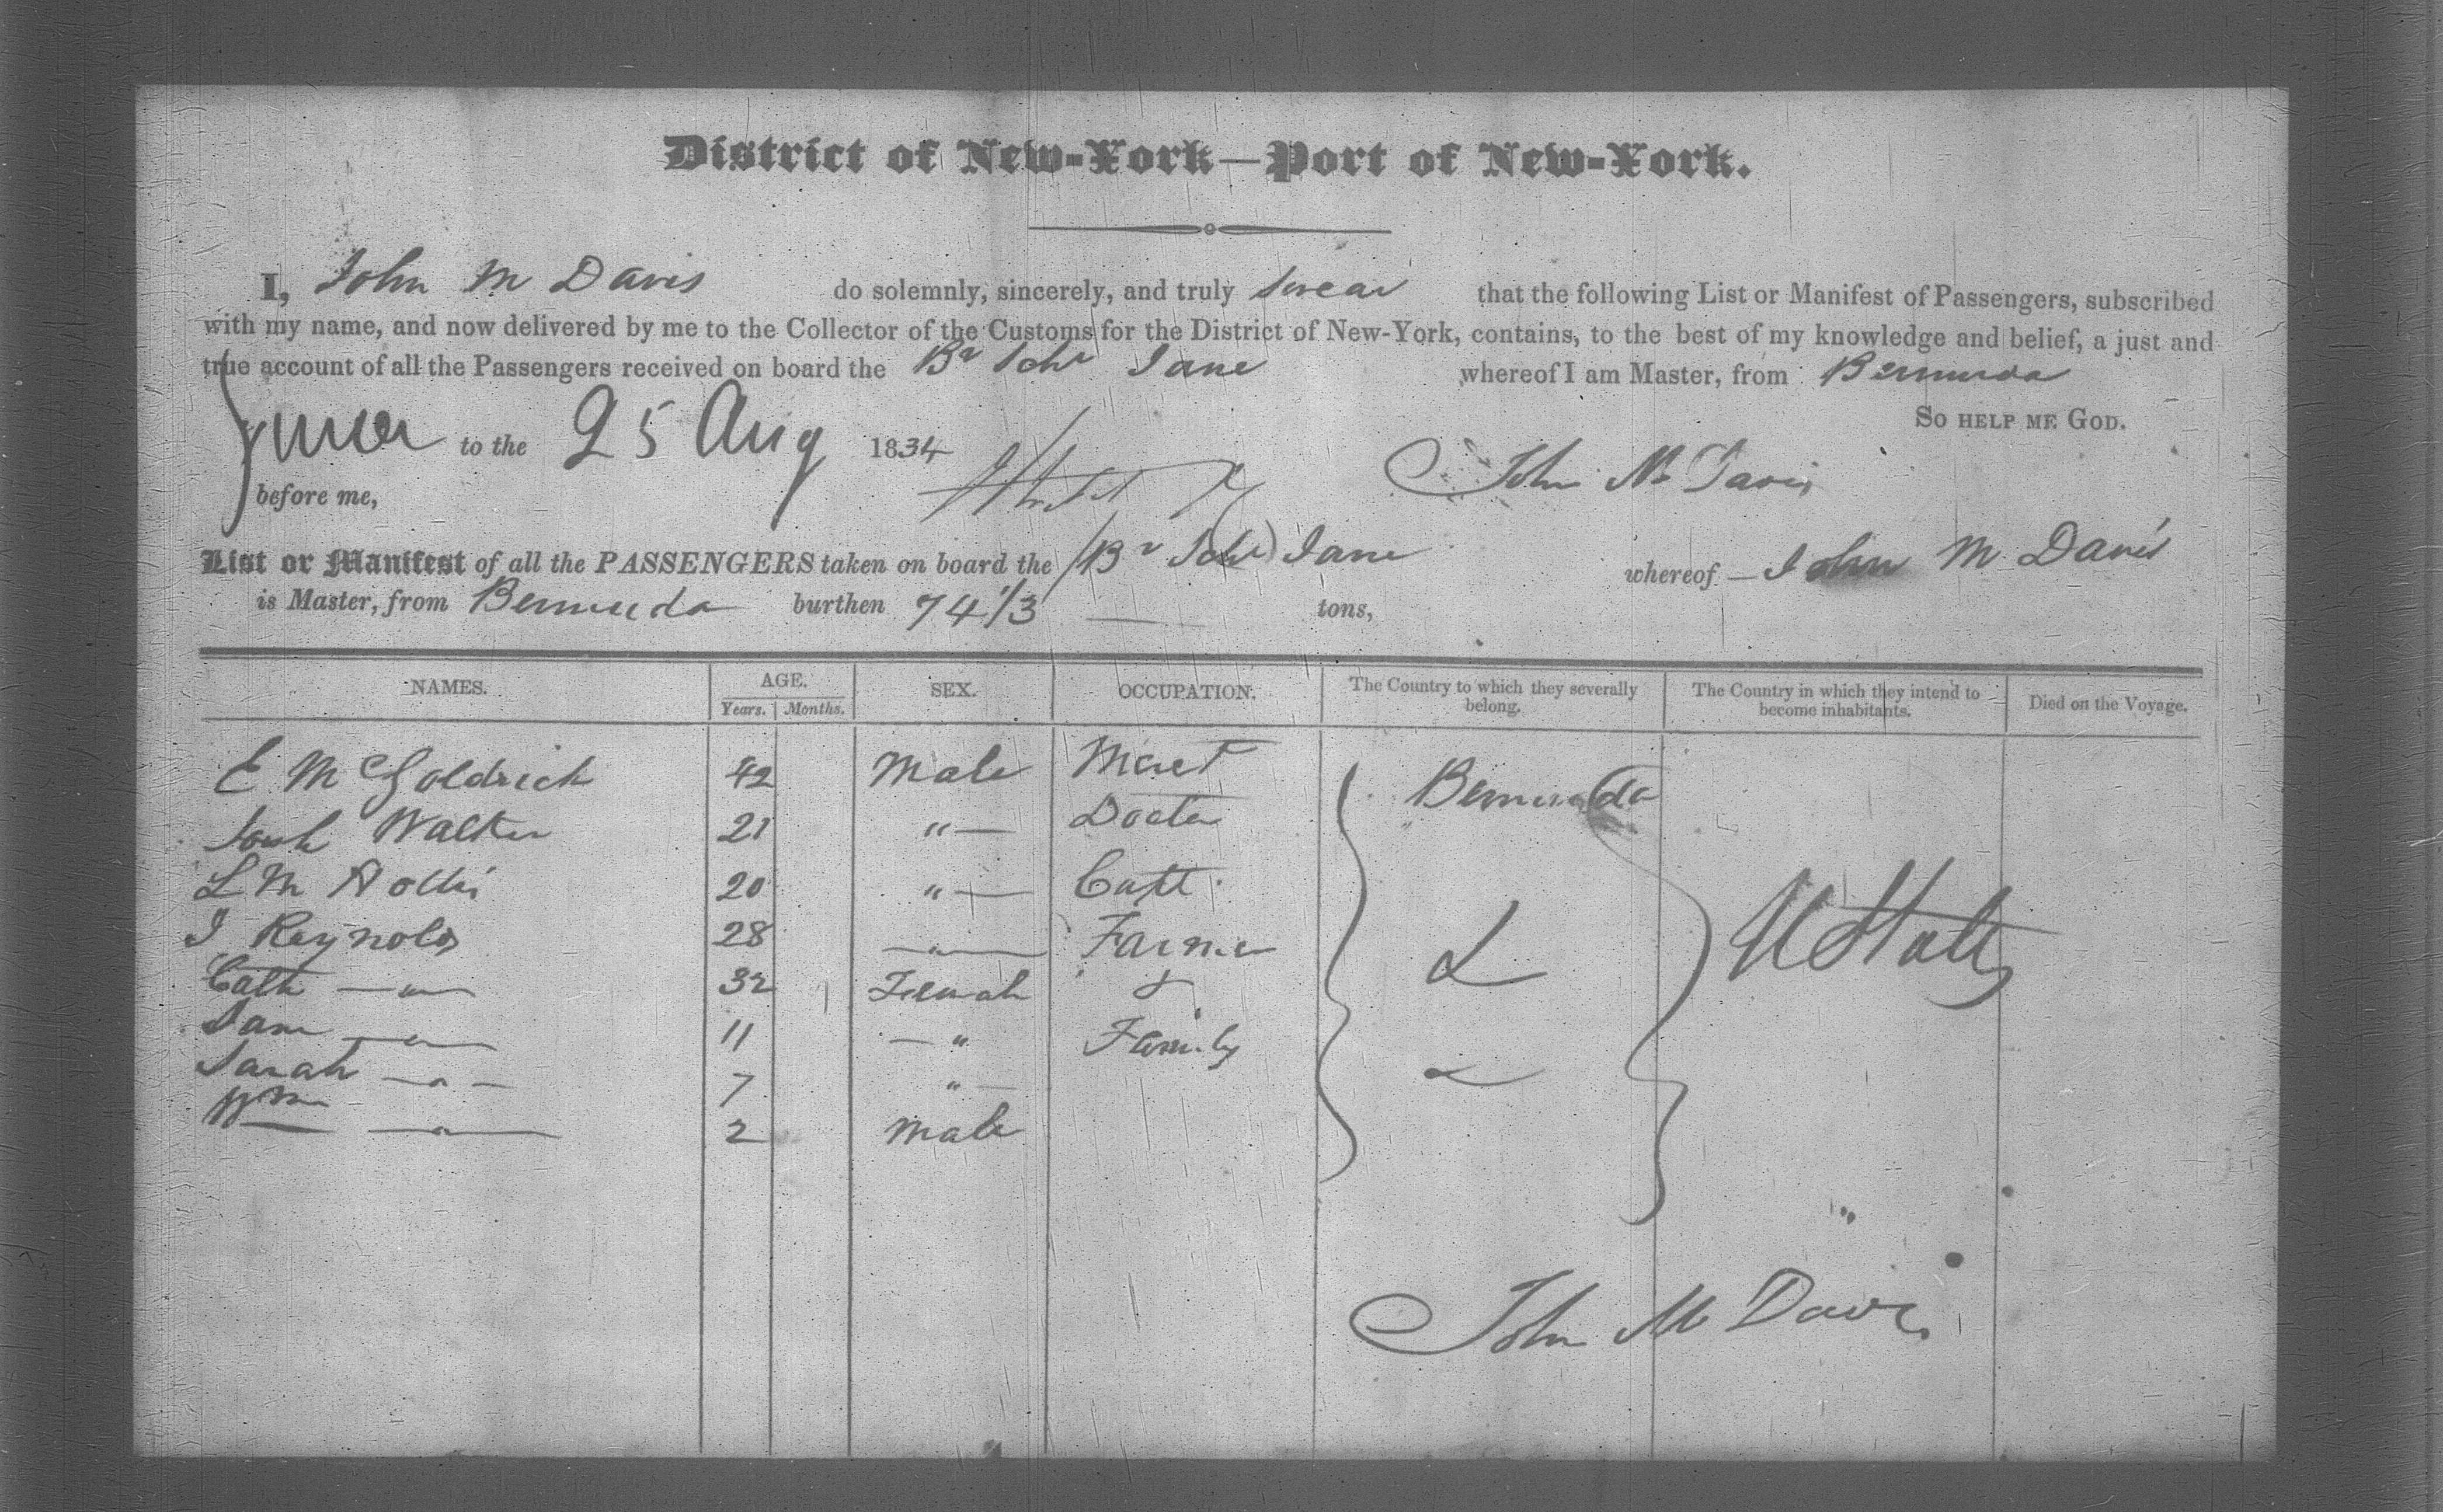 District of New-York—Port of New-York.
I, John M Davis do solemnly, sincerely, and truly swear that the following List or Manifest of Passengers, subscribed
with my name, and now delivered by me to the Collector of the Customs for the District of New-York, contains, to the best of my knowledge and belief, a just and
true account of all the Passengers received on board the Br Schr Jane whereof I am Master, from Bermuda
So help me God.
to the 25 Aug 1834
John M Davis
before me,
List or Manifest of all the PASSENGERS taken on board the (Br Schr) Jane whereof John M Davis
is Master, from Bermuda burthen 74 1/3 tons,
NAMES. AGE. SEX. OCCUPATION. The Country to which they severally belong. The Country in which they intend to become inhabitants. Died on the Voyage.
Years. Months.
E McGoldrick 42 Male Mert Bermuda
Walker 21 " Docter
L M 20 " Capt
J Reynolds 28 " Farmer U States
Cath " 32 Female &
Jane " 11 " Family
Sarah " 7 "
Wm " 2 Male
John M Davis